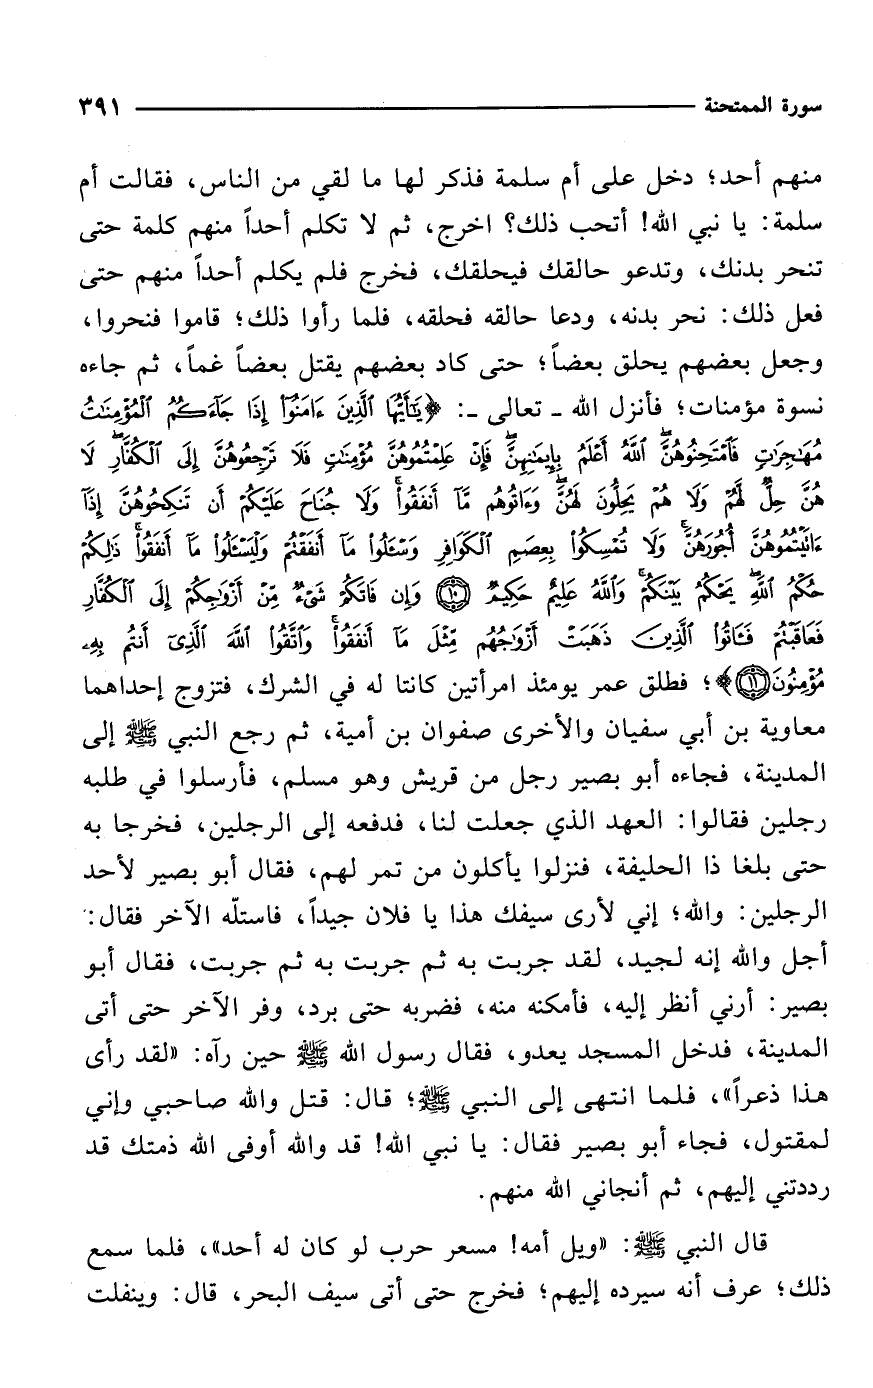 سورة الممتحنة ٣٩١
منهم أحد؛ دخل على أم سلمة فذكر لها ما لقي من الناس، فقالت أم
سلمة: يا نبي الله! أتحب ذلك؟ اخرج، ثم لا تكلم أحداً منهم كلمة حتى
تنحر بدنك، وتدعو حالقك فيحلقك، فخرج فلم يكلم أحداً منهم حتى
فعل ذلك: نحر بدنه، ودعا حالقه فحلقه، فلما رأوا ذلك؛ قاموا فنحروا،
وجعل بعضهم يحلق بعضاً؛ حتى كاد بعضهم يقتل بعضاً غماً، ثم جاءه
نسوة مؤمنات؛ فأنزل الله ـ تعالى ـ: ﴿يَٰٓأَيُّهَا ٱلَّذِينَ ءَامَنُوٓا۟ إِذَا جَآءَكُمُ ٱلْمُؤْمِنَٰتُ
مُهَٰجِرَٰتٍ فَٱمْتَحِنُوهُنَّ ۖ ٱللَّهُ أَعْلَمُ بِإِيمَٰنِهِنَّ ۖ فَإِنْ عَلِمْتُمُوهُنَّ مُؤْمِنَٰتٍ فَلَا تَرْجِعُوهُنَّ إِلَى ٱلْكُفَّارِ ۖ لَا
هُنَّ حِلٌّ لَّهُمْ وَلَا هُمْ يَحِلُّونَ لَهُنَّ ۖ وَءَاتُوهُم مَّآ أَنفَقُوا۟ ۚ وَلَا جُنَاحَ عَلَيْكُمْ أَن تَنكِحُوهُنَّ إِذَآ
ءَاتَيْتُمُوهُنَّ أُجُورَهُنَّ ۚ وَلَا تُمْسِكُوا۟ بِعِصَمِ ٱلْكَوَافِرِ وَسْـَٔلُوا۟ مَآ أَنفَقْتُمْ وَلْيَسْـَٔلُوا۟ مَآ أَنفَقُوا۟ ۚ ذَٰلِكُمْ
حُكْمُ ٱللَّهِ ۖ يَحْكُمُ بَيْنَكُمْ ۚ وَٱللَّهُ عَلِيمٌ حَكِيمٌ ١٠ وَإِن فَاتَكُمْ شَىْءٌ مِّنْ أَزْوَٰجِكُمْ إِلَى ٱلْكُفَّارِ
فَعَاقَبْتُمْ فَـَٔاتُوا۟ ٱلَّذِينَ ذَهَبَتْ أَزْوَٰجُهُم مِّثْلَ مَآ أَنفَقُوا۟ ۚ وَٱتَّقُوا۟ ٱللَّهَ ٱلَّذِىٓ أَنتُم بِهِۦ
مُؤْمِنُونَ ١١﴾؛ فطلق عمر يومئذ امرأتين كانتا له في الشرك، فتزوج إحداهما
معاوية بن أبي سفيان والأخرى صفوان بن أمية، ثم رجع النبي ﷺ إلى
المدينة، فجاءه أبو بصير رجل من قريش وهو مسلم، فأرسلوا في طلبه
رجلين فقالوا: العهد الذي جعلت لنا، فدفعه إلى الرجلين، فخرجا به
حتى بلغا ذا الحليفة، فنزلوا يأكلون من تمر لهم، فقال أبو بصير لأحد
الرجلين: والله؛ إني لأرى سيفك هذا يا فلان جيداً، فاستلّه الآخر فقال:
أجل والله إنه لجيد، لقد جربت به ثم جربت به ثم جربت، فقال أبو
بصير: أرني أنظر إليه، فأمكنه منه، فضربه حتى برد، وفر الآخر حتى أتى
المدينة، فدخل المسجد يعدو، فقال رسول الله ﷺ حين رآه: «لقد رأى
هذا ذعراً»، فلما انتهى إلى النبي ﷺ؛ قال: قتل والله صاحبي وإني
لمقتول، فجاء أبو بصير فقال: يا نبي الله! قد والله أوفى الله ذمتك قد
رددتني إليهم، ثم أنجاني الله منهم.
قال النبي ﷺ: «ويل أمه! مسعر حرب لو كان له أحد»، فلما سمع
ذلك؛ عرف أنه سيرده إليهم؛ فخرج حتى أتى سيف البحر، قال: وينفلت